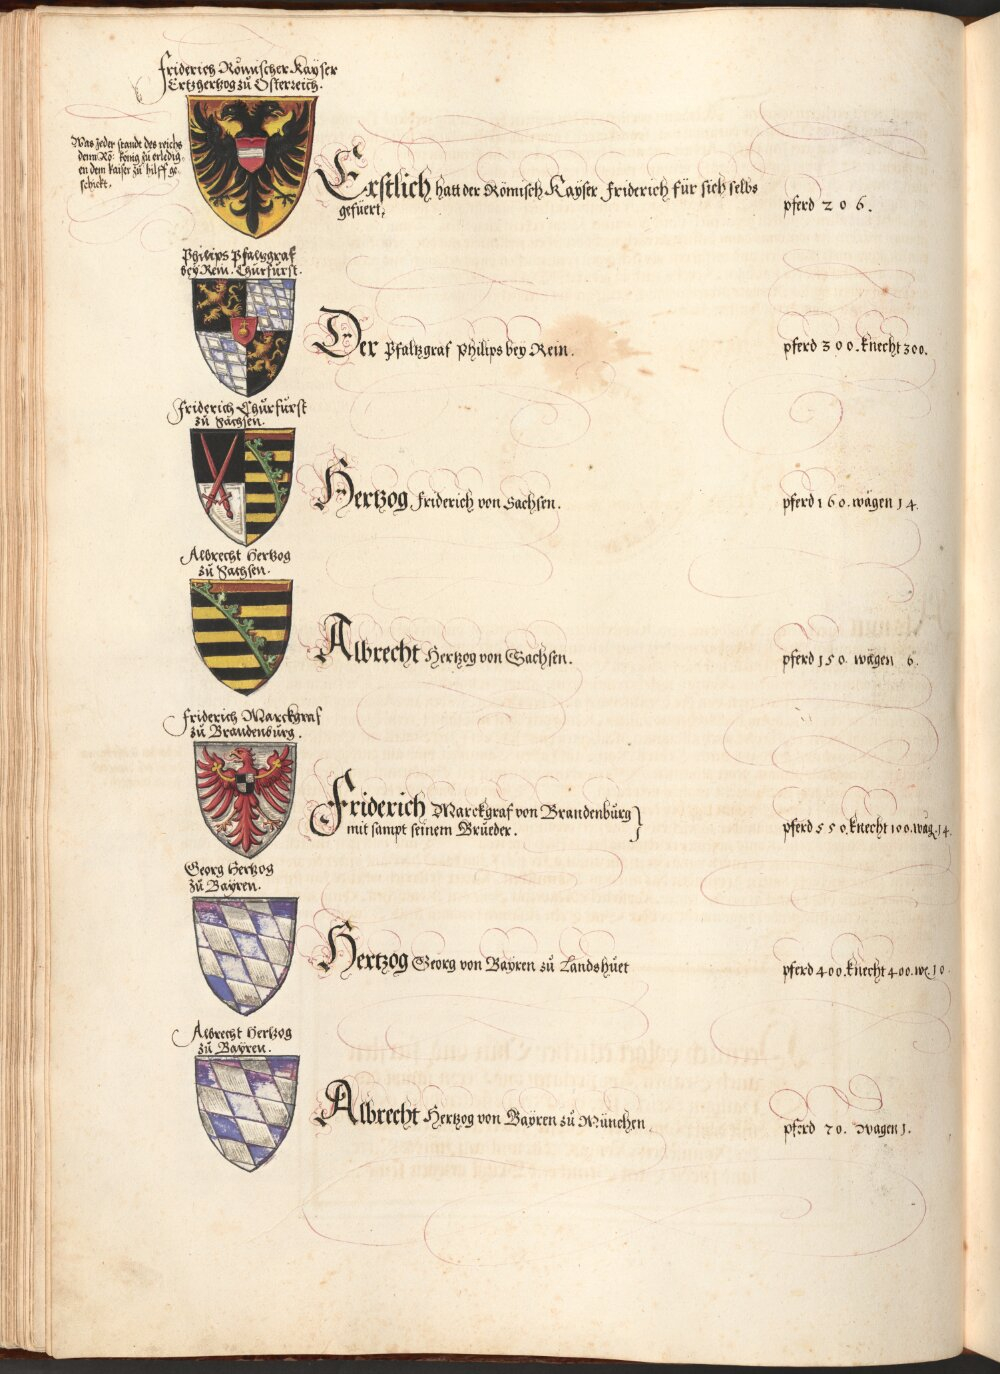 Friderich Römischer Kayser
Ertzhertzog zů Österreich.
Was jeder standt des reichs
denn Rö: König zů erledig¬
en dem kaiser zů hilff ge
schickt.
Erstlich hatt der Römisch Kayser Friderich für sich selbs
gefüert,
pferd 206.
Philips Pfaltzgraf
bey Rein. Chůrfürst.
Der Pfaltzgraf Philips bey Rein.
pferd 300. knecht 300.
Friderich Chůrfürst
zů Sachsen.
Hertzog Friderich von Sachsen.
pferd 160. wägen 14.
Albrecht Hertzog
zů Sachsen.
Albrecht Hertzog von Sachsen.
pferd 150. wägen 6.
Friderich Marckgraf
zů Brandenbůrg.
Friderich Marckgraf von Brandenbůrg
mit sampt seinem Brüeder.
pferd 550. knecht 100. wäg. 14.
Georg Hertzog
zů Bayren.
Hertzog Georg von Bayren zů Landshůet
pferd 400. knecht 400. we. 10.
Albrecht Hertzog
zů Bayren.
Albrecht Hertzog von Bayren zů München
pferd 70. wagen 1.